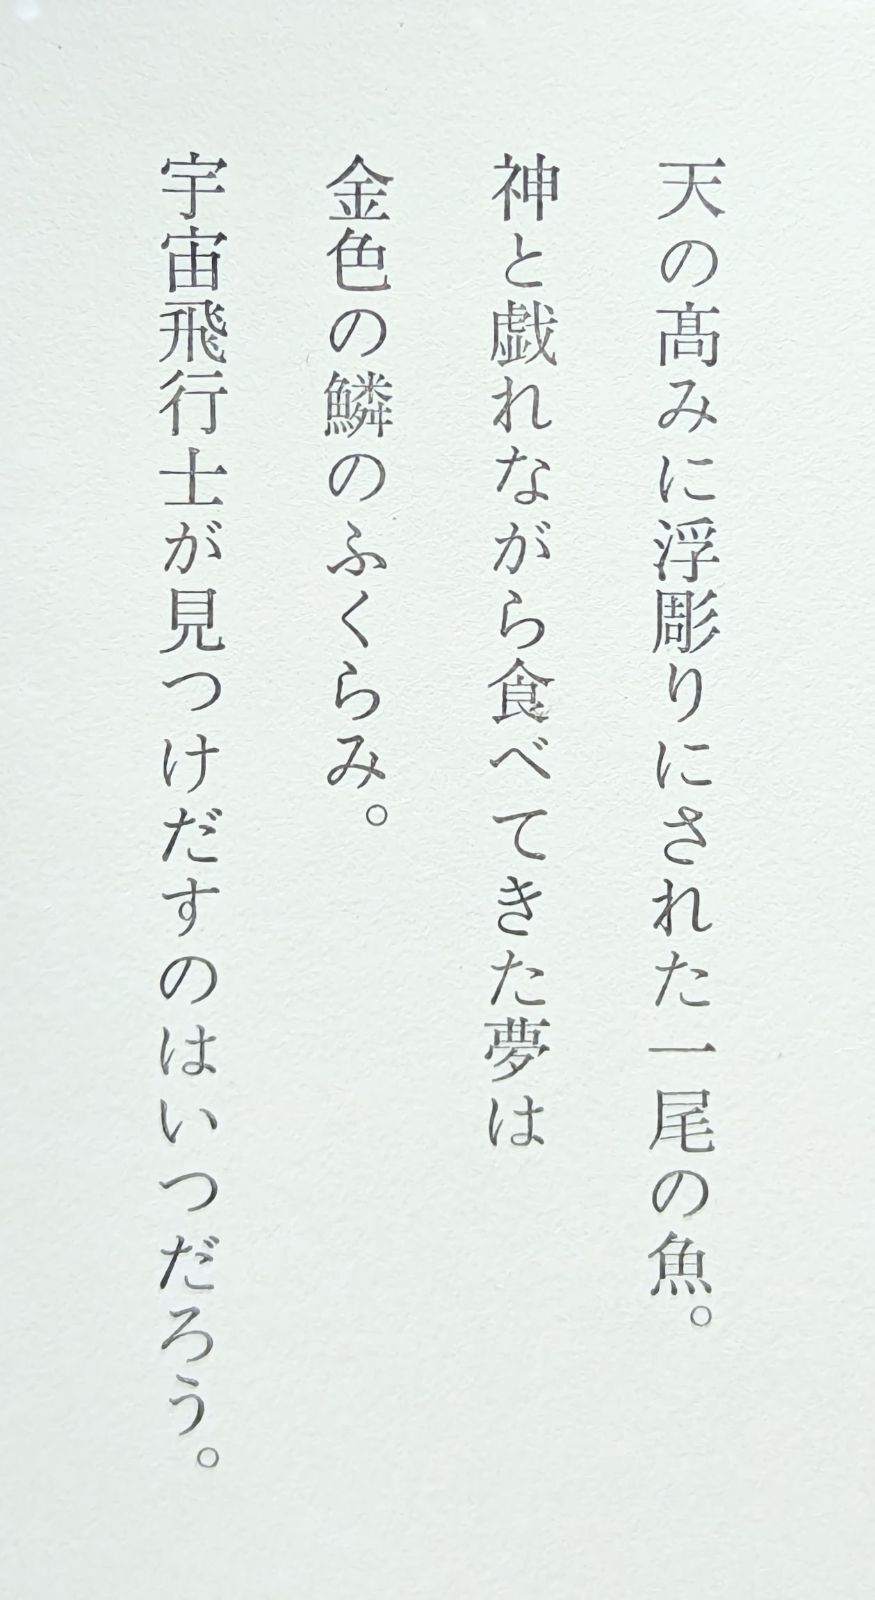 天の髙みに浮彫りにされた一尾の魚。
神と戯れながら食べてきた夢は
金色の鱗のふくらみ。
宇宙飛行士が見つけだすのはいつだろう。